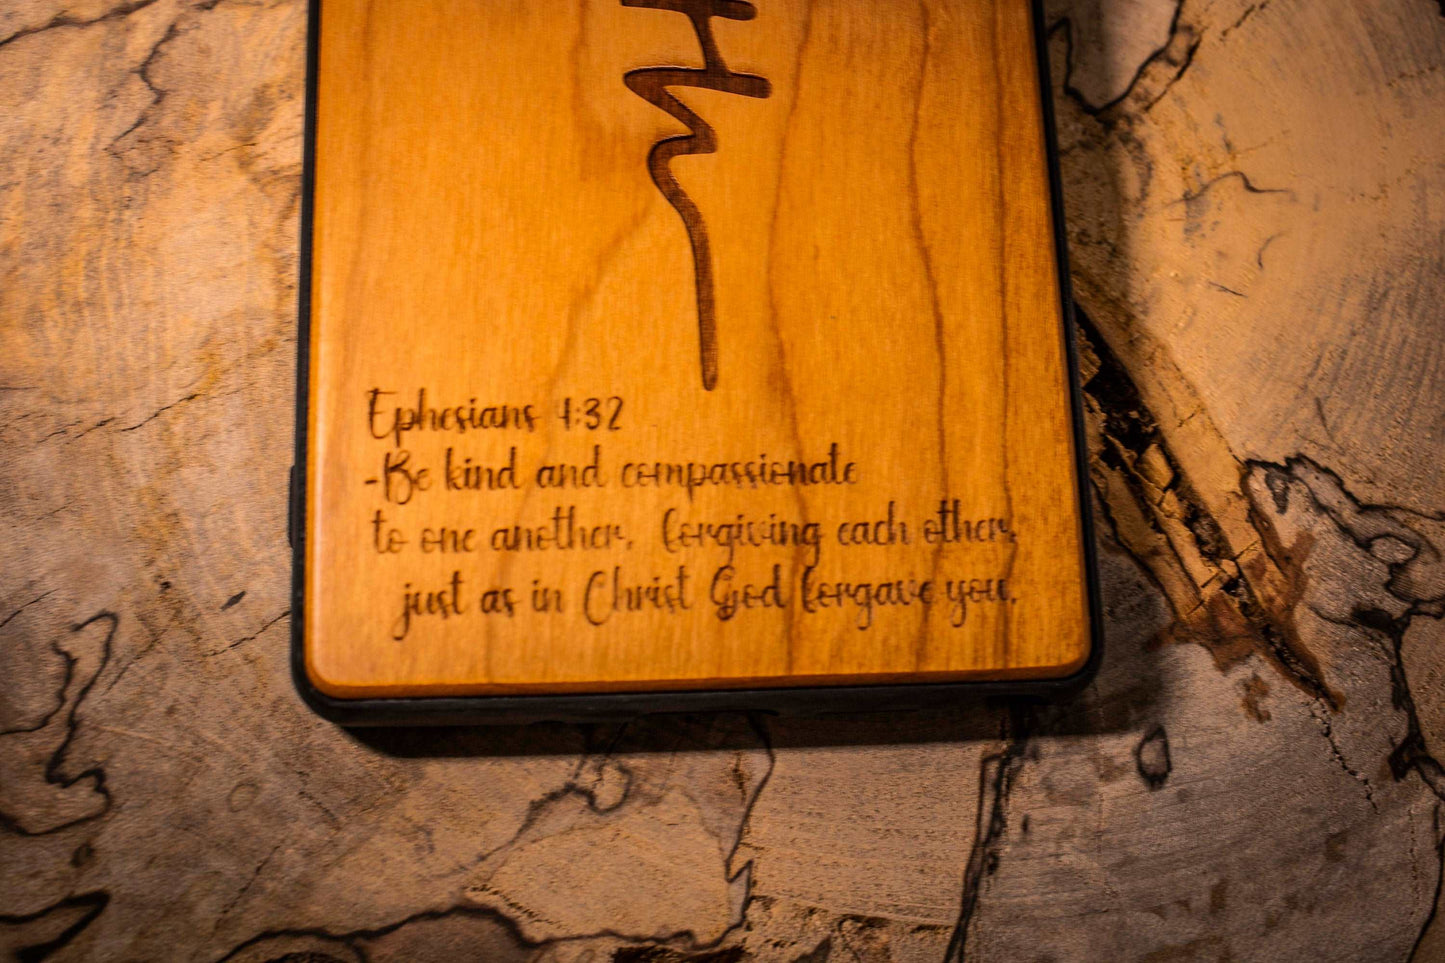 Ephesians 4:32
-Be kind and compassionate
to one another, forgiving each other,
just as in Christ God forgave you.